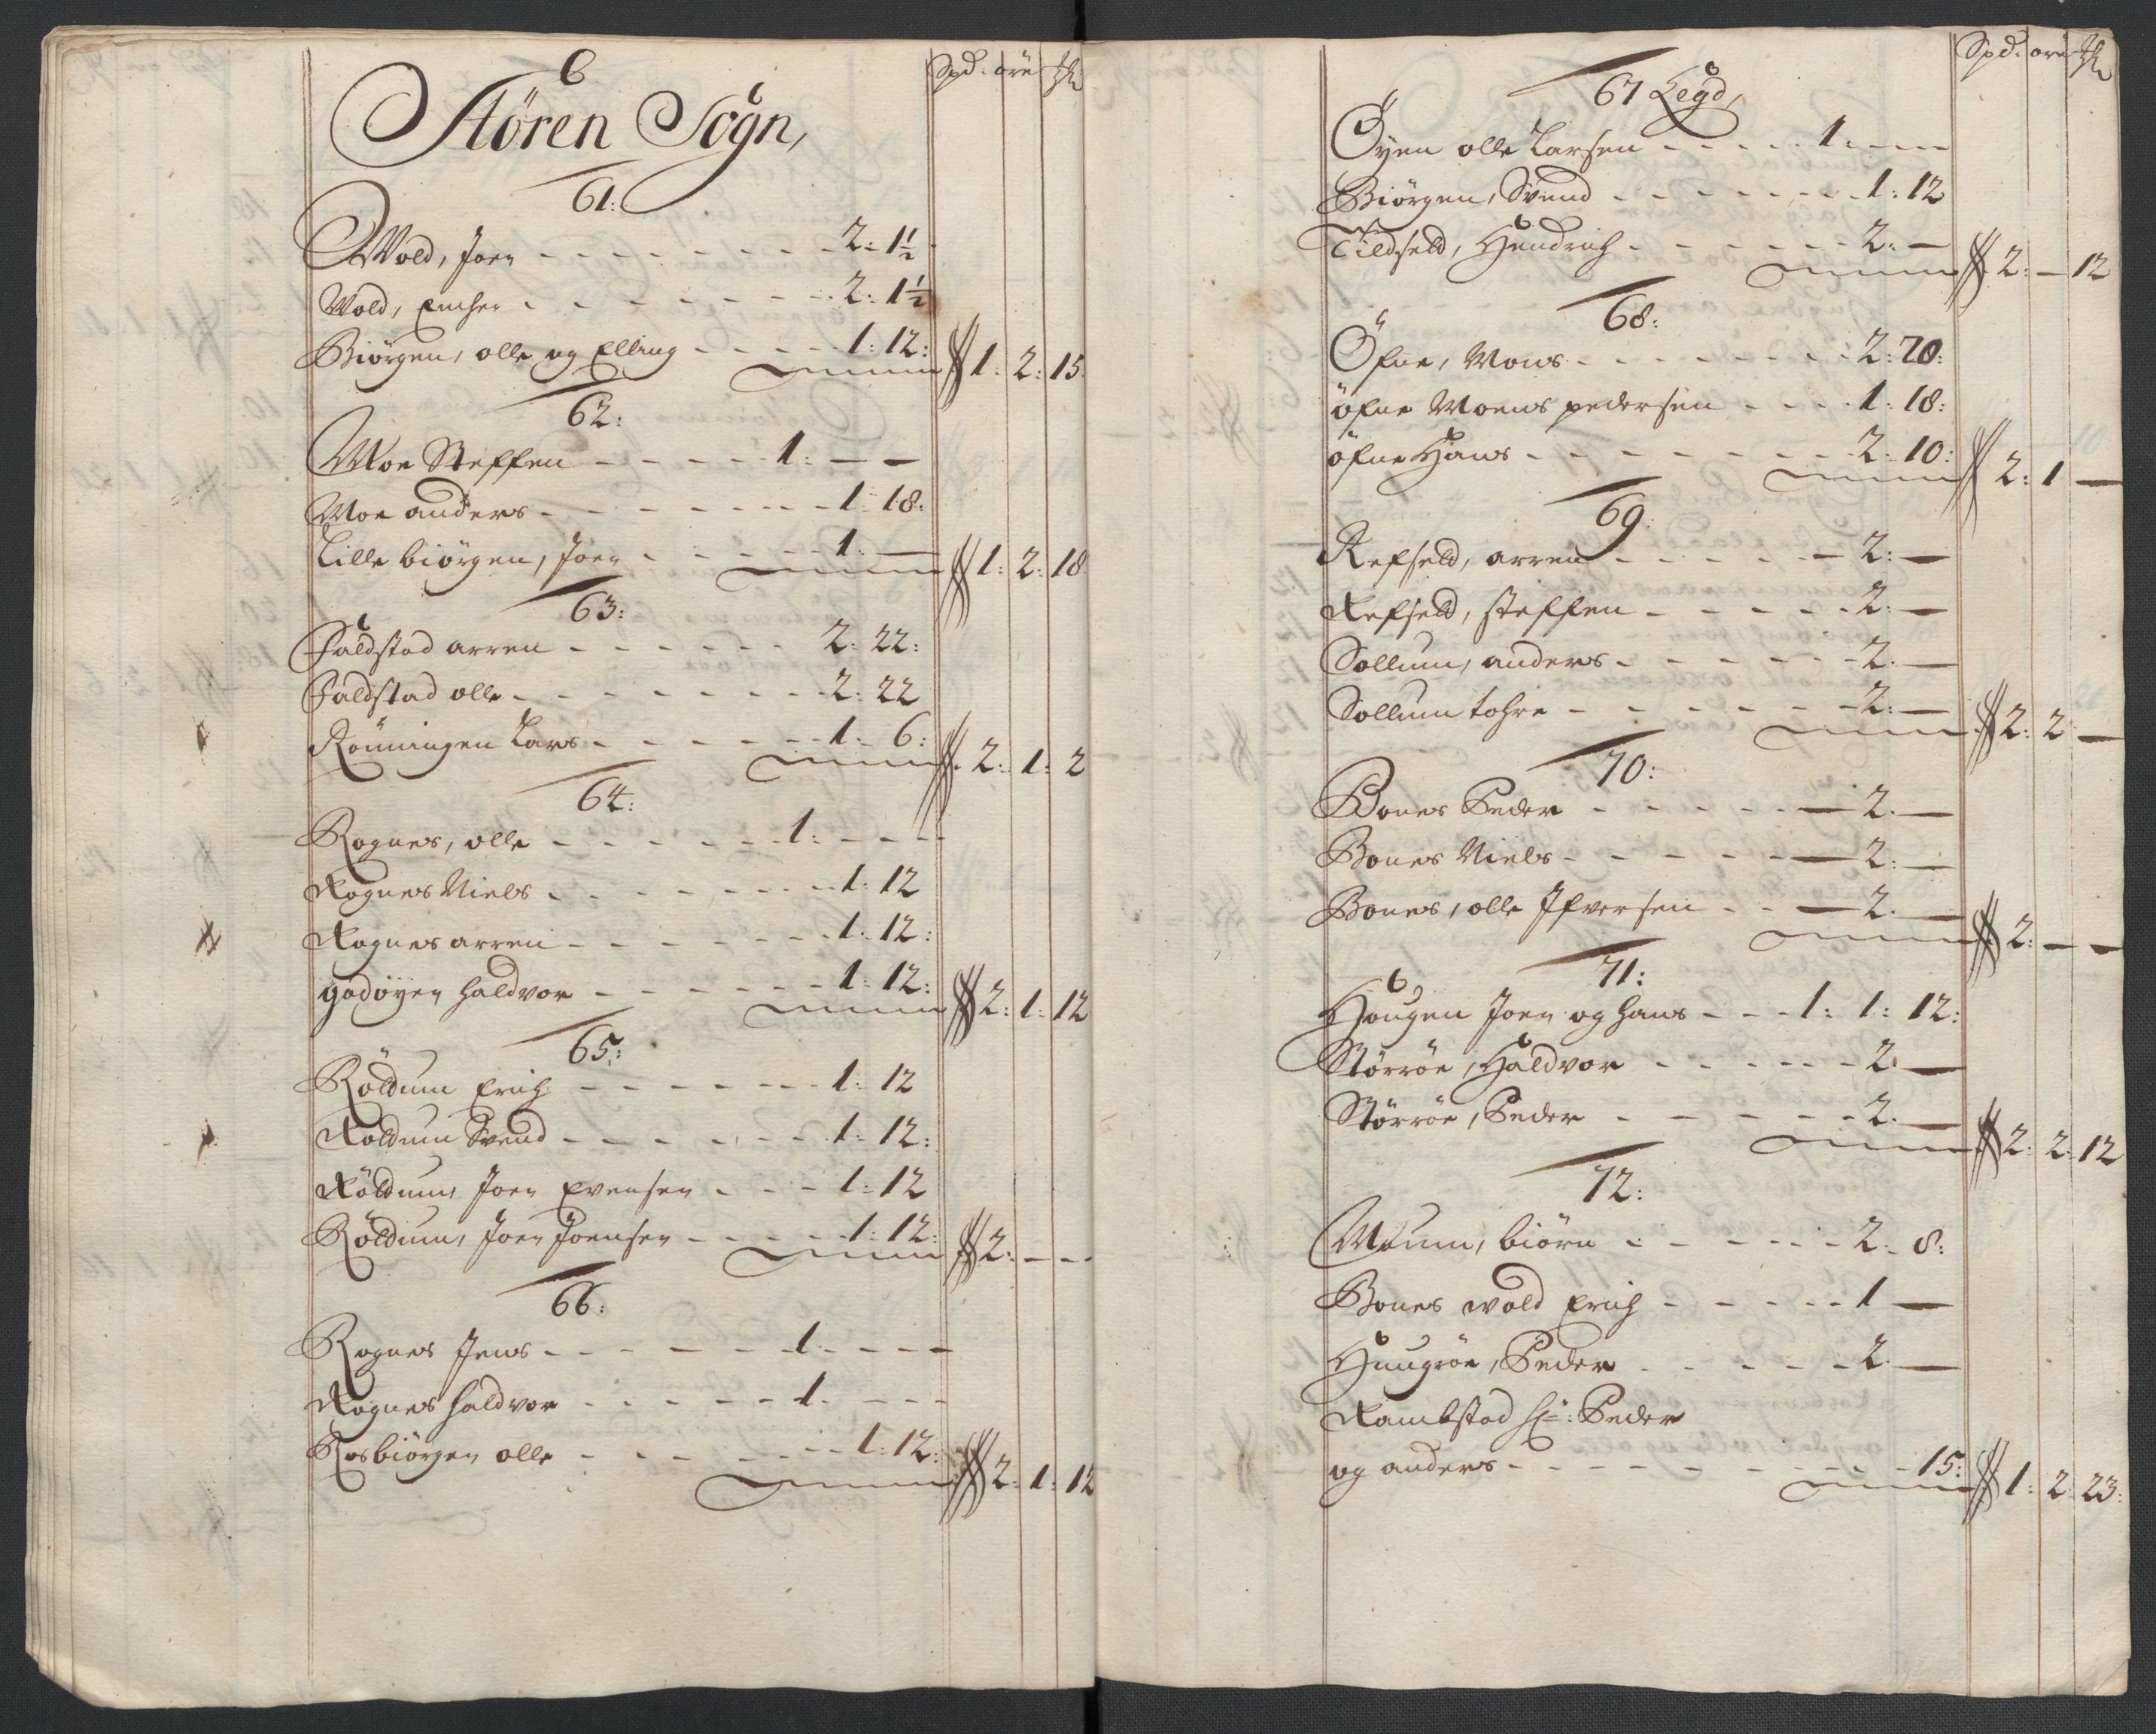 Spd: øre
Støren Sogn,
61:
Wold, Joen - - - - - - - 2: 1½
Wold, - - - - - - - 2: 1½
Biörgen, olle og Elling - - - - 1: 12: 1: 2: 15
62:
Moe Steffen - - - - - 1: — —
Moe anders - - - - - - - 1: 18:
Lille biörgen, Joen - - - - - 1: — 1: 2: 18
63:
Faldstad arren - - - - - - 2: 22:
Faldstad olle - - - - - - - 2: 22
Rönningen Lars - - - - - - 1: 6: 2: 1: 2
64:
Rognes, olle - - - - - - 1: - - -
Rognes Niels - - - - - - - 1: 12
Rognes arren - - - - - - - 1: 12:
godöyen Haldvor - - - - - - 1: 12: 2: 1: 12
65:
Röldum Erich - - - - - - 1: 12
Röldum Svend - - - - - - 1: 12:
Röldum, Joen Evensen - - - 1: 12
Röldum, Joen Joensen - - - - - 1: 12: 2: — —
66:
Rognes Jens - - - - - - 1: - - -
Rognes Haldvor - - - - - 1: - - -
Rosbiörgen olle - - - - - - 1: 12: 2: 1: 12
Spd: øre
67 Legd,
Öyen olle Larsen - - - - - 1: - - -
Biörgen, Svend - - - - - - - 1: 12
Tildseld, Hendrich - - - - - - 2: — 2: — 12
68:
Öfne, Mons - - - - - - - 2: 20:
öfne Moens pedersen - - - - 1: 18:
öfne Hans - - - - - - - - 2: 10: 2: 1 —
69:
Refseld, arren - - - - - — 2: —
Refseld, steffen - - - - - 2: —
Sollum, anders - - - - - - 2: —
Sollum tohre - - - - - - 2: — 2: 2: —
70:
Bones Peder - - - - - — 2: —
Bones Niels - - - - - — 2: —
Bones, olle Ifversen - - — 2: — 2: — —
71:
Hougen Joen og Hans - - - 1: 1: 12:
Störröe, Haldvor - - - - - - 2: —
Störröe, Peder - - - - - - 2: — 2: 2: 12
72:
Moum, biörn - - - - - - 2: 8:
Bones wold Erich - - - - - 1 —
Haugröe, Peder - - - - - 2: —
Rambstad Peder
og anders - - - - - - - - - 15: 1: 2: 23: